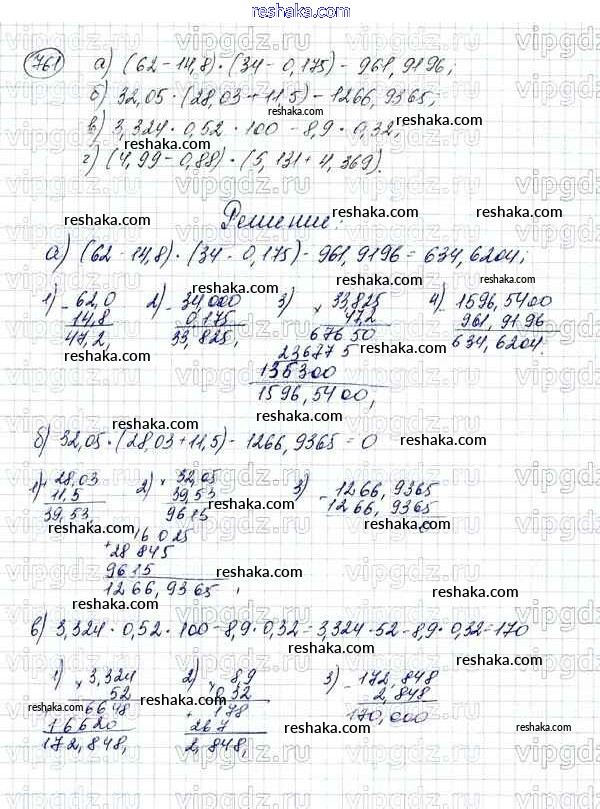 reshaka.com
761 а) (62-14,8)·(34-0,175)-961,9196;
б) 32,05·(28,03+11,5)-1266,9365;
в) 3,324·0,52·100-8,9·0,32;
г) (4,99-0,88)·(5,131+4,369).
Решение:
а) (62-14,8)·(34-0,175)-961,9196=634,6204;
1) -62,0 2) -34,000 3) ×33,825 4) -1596,5400
14,8 0,175 47,2 961,9196
47,2, 33,825, 67650 634,6204.
236775
135300
1596,5400,
б) 32,05·(28,03+11,5)-1266,9365=0
1) +28,03 2) ×32,05 3) -1266,9365
11,5 39,53 1266,9365
39,53 9615 0
16025
+28845
9615
1266,9365,
в) 3,324·0,52·100-8,9·0,32=3,324·52-8,9·0,32=170
1) ×3,324 2) ×8,9 3) -172,848
52 0,32 2,848
6648 +178 170,000
16620 267
172,848, 2,848,